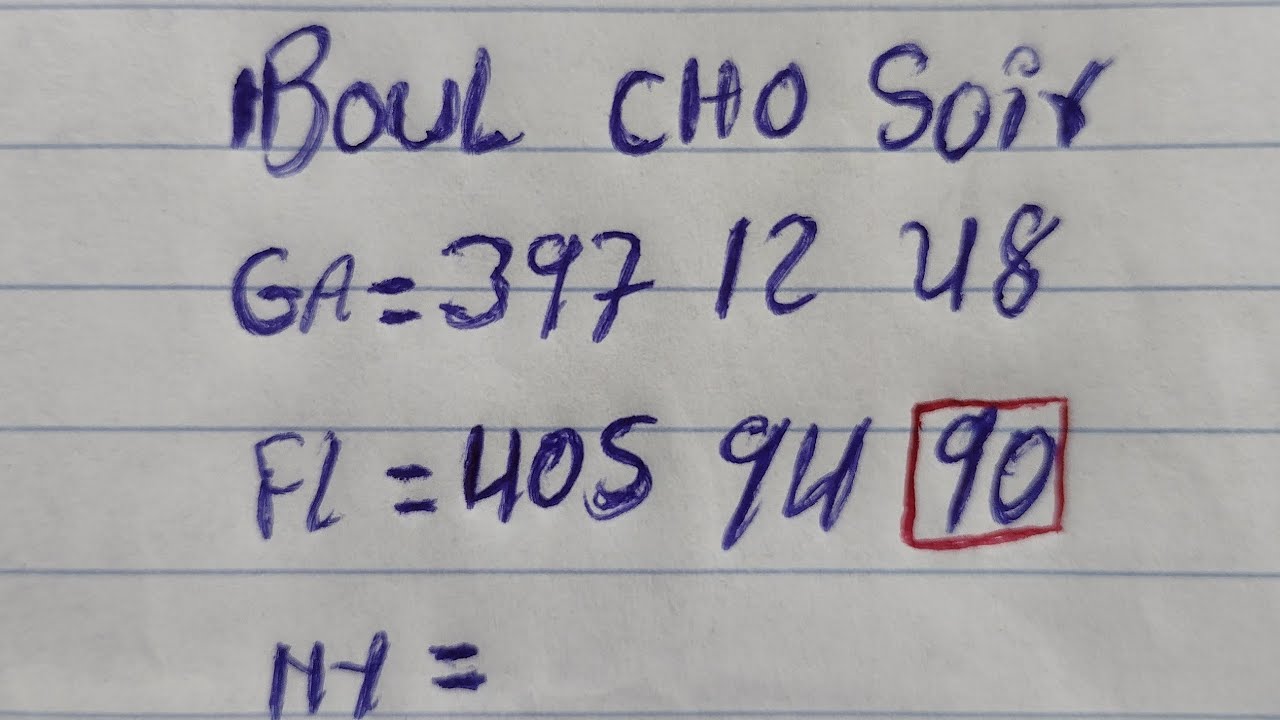 Boul CHO Soir
GA = 397 12 48
FL = 405 94 90
NY =